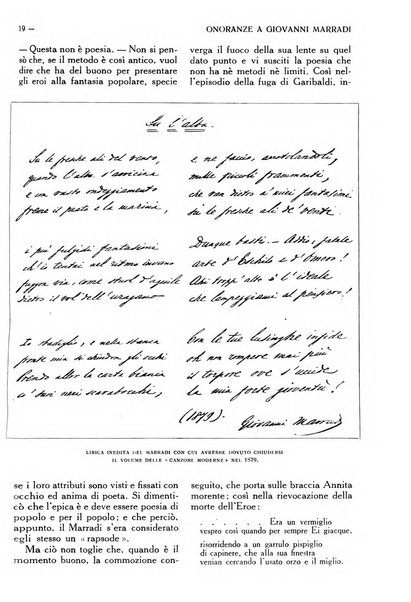 19 —
ONORANZE A GIOVANNI MARRADI
— Questa non è poesia. — Non si pen-
sò che, se il metodo è così antico, vuol
dire che ha del buono per presentare
gli eroi alla fantasia popolare, specie
verga il fuoco della sua lente su quel
dato punto e vi susciti la poesia che
non ha nè metodi nè limiti. Così nel-
l'episodio della fuga di Garibaldi, in-
Su l'alba.
Su le fresche ali del vento,
quando l'alba s'avvicina
e un vasto ondeggiamento
freme il prato e la marina,
i più fulgidi fantasimi
ch'io tentai nel ritmo invano
fuggon via, come stuol d'aquile
dietro il vol dell'uragano
Io sbadiglio, e nella stanca
fronte mia si chiudon gli occhi
Prendo allor la carta bianca
a' suoi neri scarabocchi,
e ne faccio, arrotolandoli,
mille piccoli frammenti,
che van dietro a' miei fantasimi
su le fresche ali de' venti.
Dunque basti. — Addio, fatale
arte d'Eschilo e d'Omero!
Ahi tropp'alto è l'ideale
che lampeggiami al pensiero!
Con le tue lusinghe infide
oh non rompere mai più
il torpore ove s'asside
la mia forte gioventù!
(1879)
Giovanni Marradi
LIRICA INEDITA DEL MARRADI CON CUI AVREBBE DOVUTO CHIUDERSI
IL VOLUME DELLE «CANZONI MODERNE» NEL 1879.
se i loro attributi sono visti e fissati con
occhio ed anima di poeta. Si dimenti-
cò che l'epica è e deve essere poesia di
popolo e per il popolo; e che perciò,
appunto, il Marradi s'era considerato
egli stesso un « rapsode ».
Ma ciò non toglie che, quando è il
momento buono, la commozione con-
seguito, che porta sulle braccia Annita
morente; così nella rievocazione della
morte dell'Eroe:
. . . . . . . Era un vermiglio
vespro così quando per sempre Ei giacque,
ricordandosi a un garrulo pispiglio
di capinere, che alla sua finestra
venian cercando l'usato orzo e il miglio.